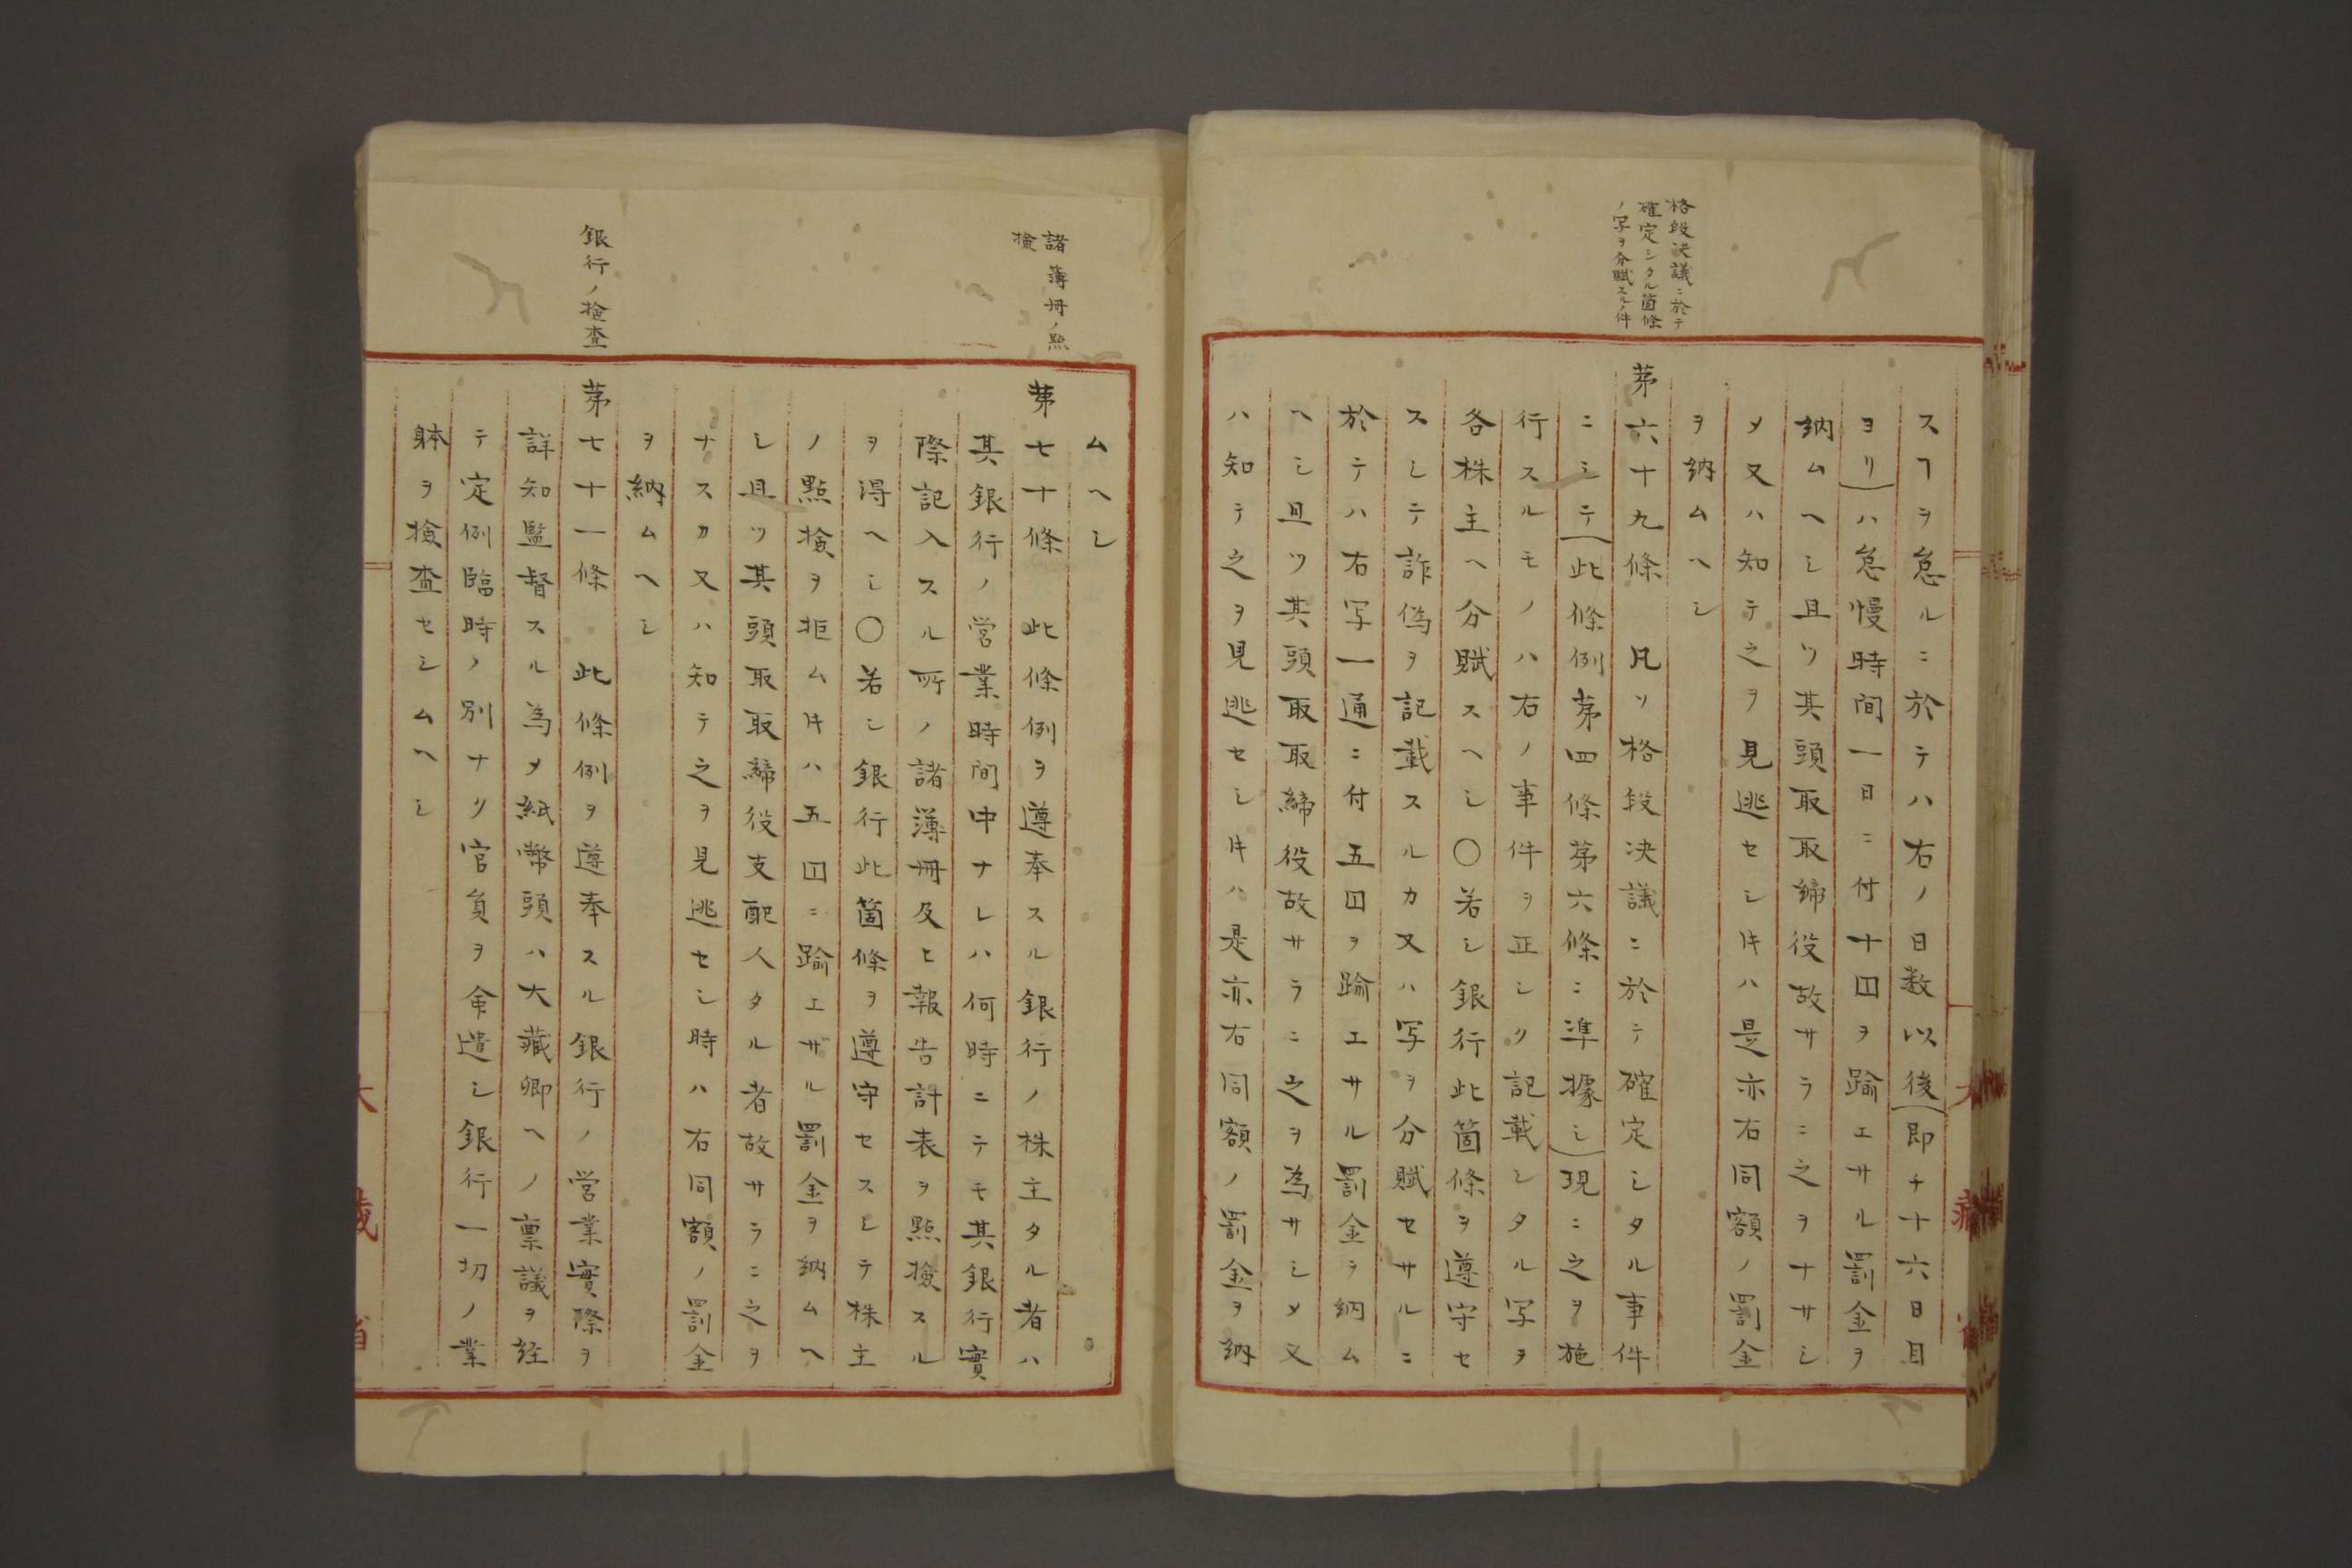 格段决議ニ於テ
確定シタル箇條
ノ写ヲ分賦スルノ件
スヿヲ怠ルニ於テハ右ノ日数以後(即チ十六日目
ヨリ)ハ怠慢時間一日ニ付十囸ヲ踰エサル罰金ヲ
納ムヘシ且ツ其頭取取締役故サラニ之ヲナサシ
メ又ハ知テ之ヲ見逃セシ𪜈ハ是亦右同額ノ罰金
ヲ納ムヘシ
苐六十九條 凡ソ格段决議ニ於テ確定シタル事件
ニシテ(此條例苐四條苐六條ニ準據シ)現ニ之ヲ施
行スルモノハ右ノ事件ヲ正シク記載シタル写ヲ
各株主ヘ分賦スヘシ〇若シ銀行此箇條ヲ遵守セ
スシテ詐偽ヲ記載スルカ又ハ写ヲ分賦セサルニ
於テハ右写一通ニ付五囸ヲ踰エサル罰金ヲ納ム
ヘシ且ツ其頭取取締役故サラニ之ヲ為サシメ又
ハ知テ之ヲ見逃セシ𪜈ハ是亦右同額ノ罰金ヲ納
諸薄冊ノ點
撿
銀行ノ撿査
ムヘシ
苐七十條 此條例ヲ遵奉スル銀行ノ株主タル者ハ
其銀行ノ営業時間中ナレハ何時ニテモ其銀行實
際記入スル所ノ諸薄冊及ヒ報告計表ヲ點撿スル
ヲ得ヘシ〇若シ銀行此箇條ヲ遵守セスシテ株主
ノ點撿ヲ拒ムキハ五囸ニ踰エザル罰金ヲ納ムヘ
シ且ツ其頭取取締役支配人タル者故サラニ之ヲ
ナスカ又ハ知テ之ヲ見逃セシ時ハ右同額ノ罰金
ヲ納ムヘシ
苐七十一條 此條例ヲ遵奉スル銀行ノ営業實際ヲ
詳知監督スル為メ紙幣頭ハ大藏卿ヘノ稟議ヲ経
テ定例臨時ノ別ナク官負ヲ命遣シ銀行一切ノ業
躰ヲ撿査セシムヘシ
大藏省